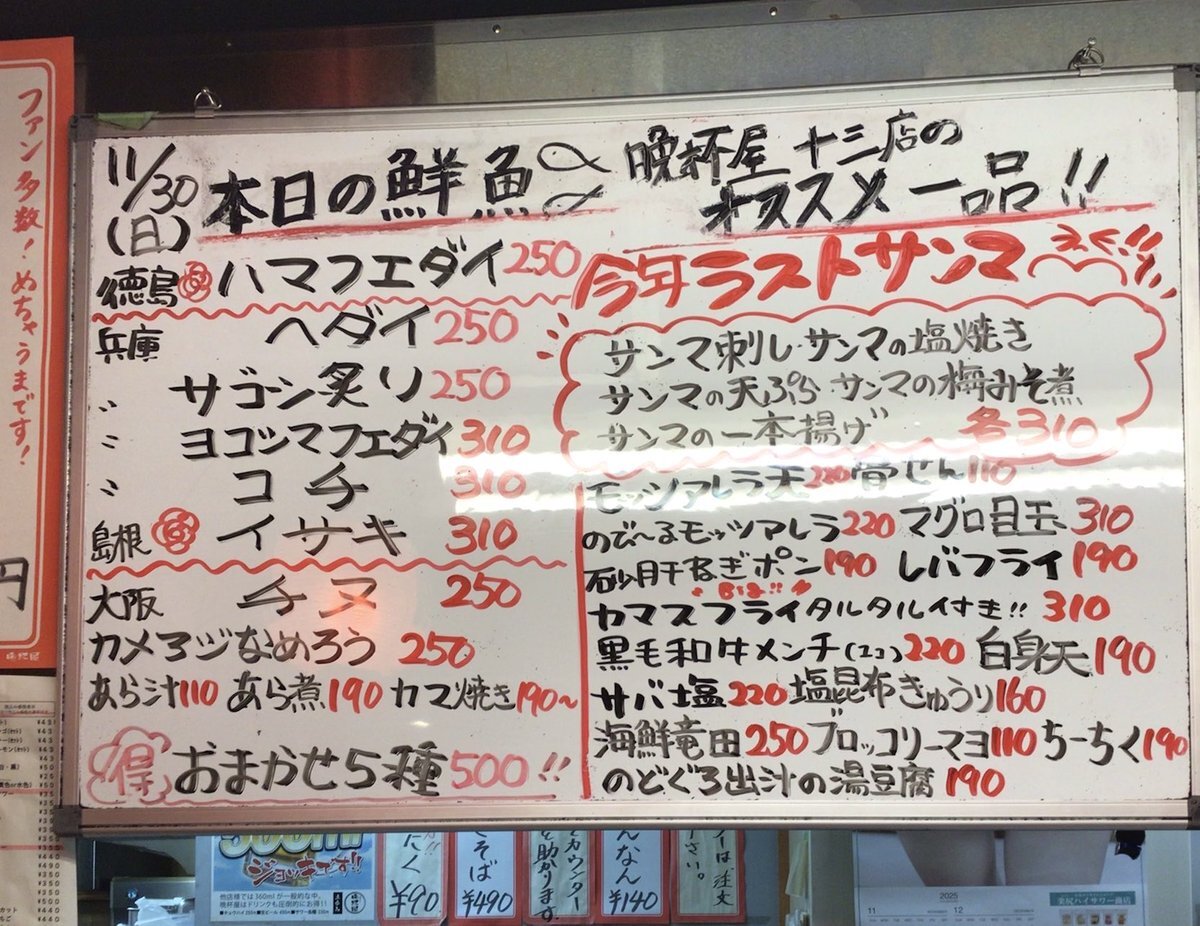 ファン多数！めちゃうまです！
円
晩杯屋
11/30
(日)
本日の鮮魚
徳島 ハマフエダイ 250
兵庫 ヘダイ 250
〃 サゴシ炙り 250
〃 ヨコシマフエダイ 310
〃 コチ 310
島根 イサキ 310
大阪 チヌ 250
カメアジなめろう 250
あら汁110 あら煮190 カマ焼き190~
得 おまかせ5種500!!
晩杯屋 十三店の
オススメ一品!!
今年ラストサンマ
サンマ刺し・サンマの塩焼き
サンマの天ぷら サンマの梅みそ煮
サンマの一本揚げ 各310
モッツァレラ天220 骨せん110
のび〜るモッツアレラ220 マグロ目玉310
砂肝ねぎポン190 レバフライ190
Big!!
カマスフライタルタル付き!! 310
黒毛和牛メンチ(2コ)220 白身天190
サバ塩220 塩昆布きゅうり160
海鮮竜田250 ブロッコリーマヨ110 ちーちく190
のどぐろ出汁の湯豆腐 190
ジョッキです!!
他店様では360mlが一般的な中、
晩杯屋はドリンクも圧倒的にお得!!
たく ¥90
そば ¥490
カウンター
助かります。
んなん ¥140
は注文
さい。
2025
11
12